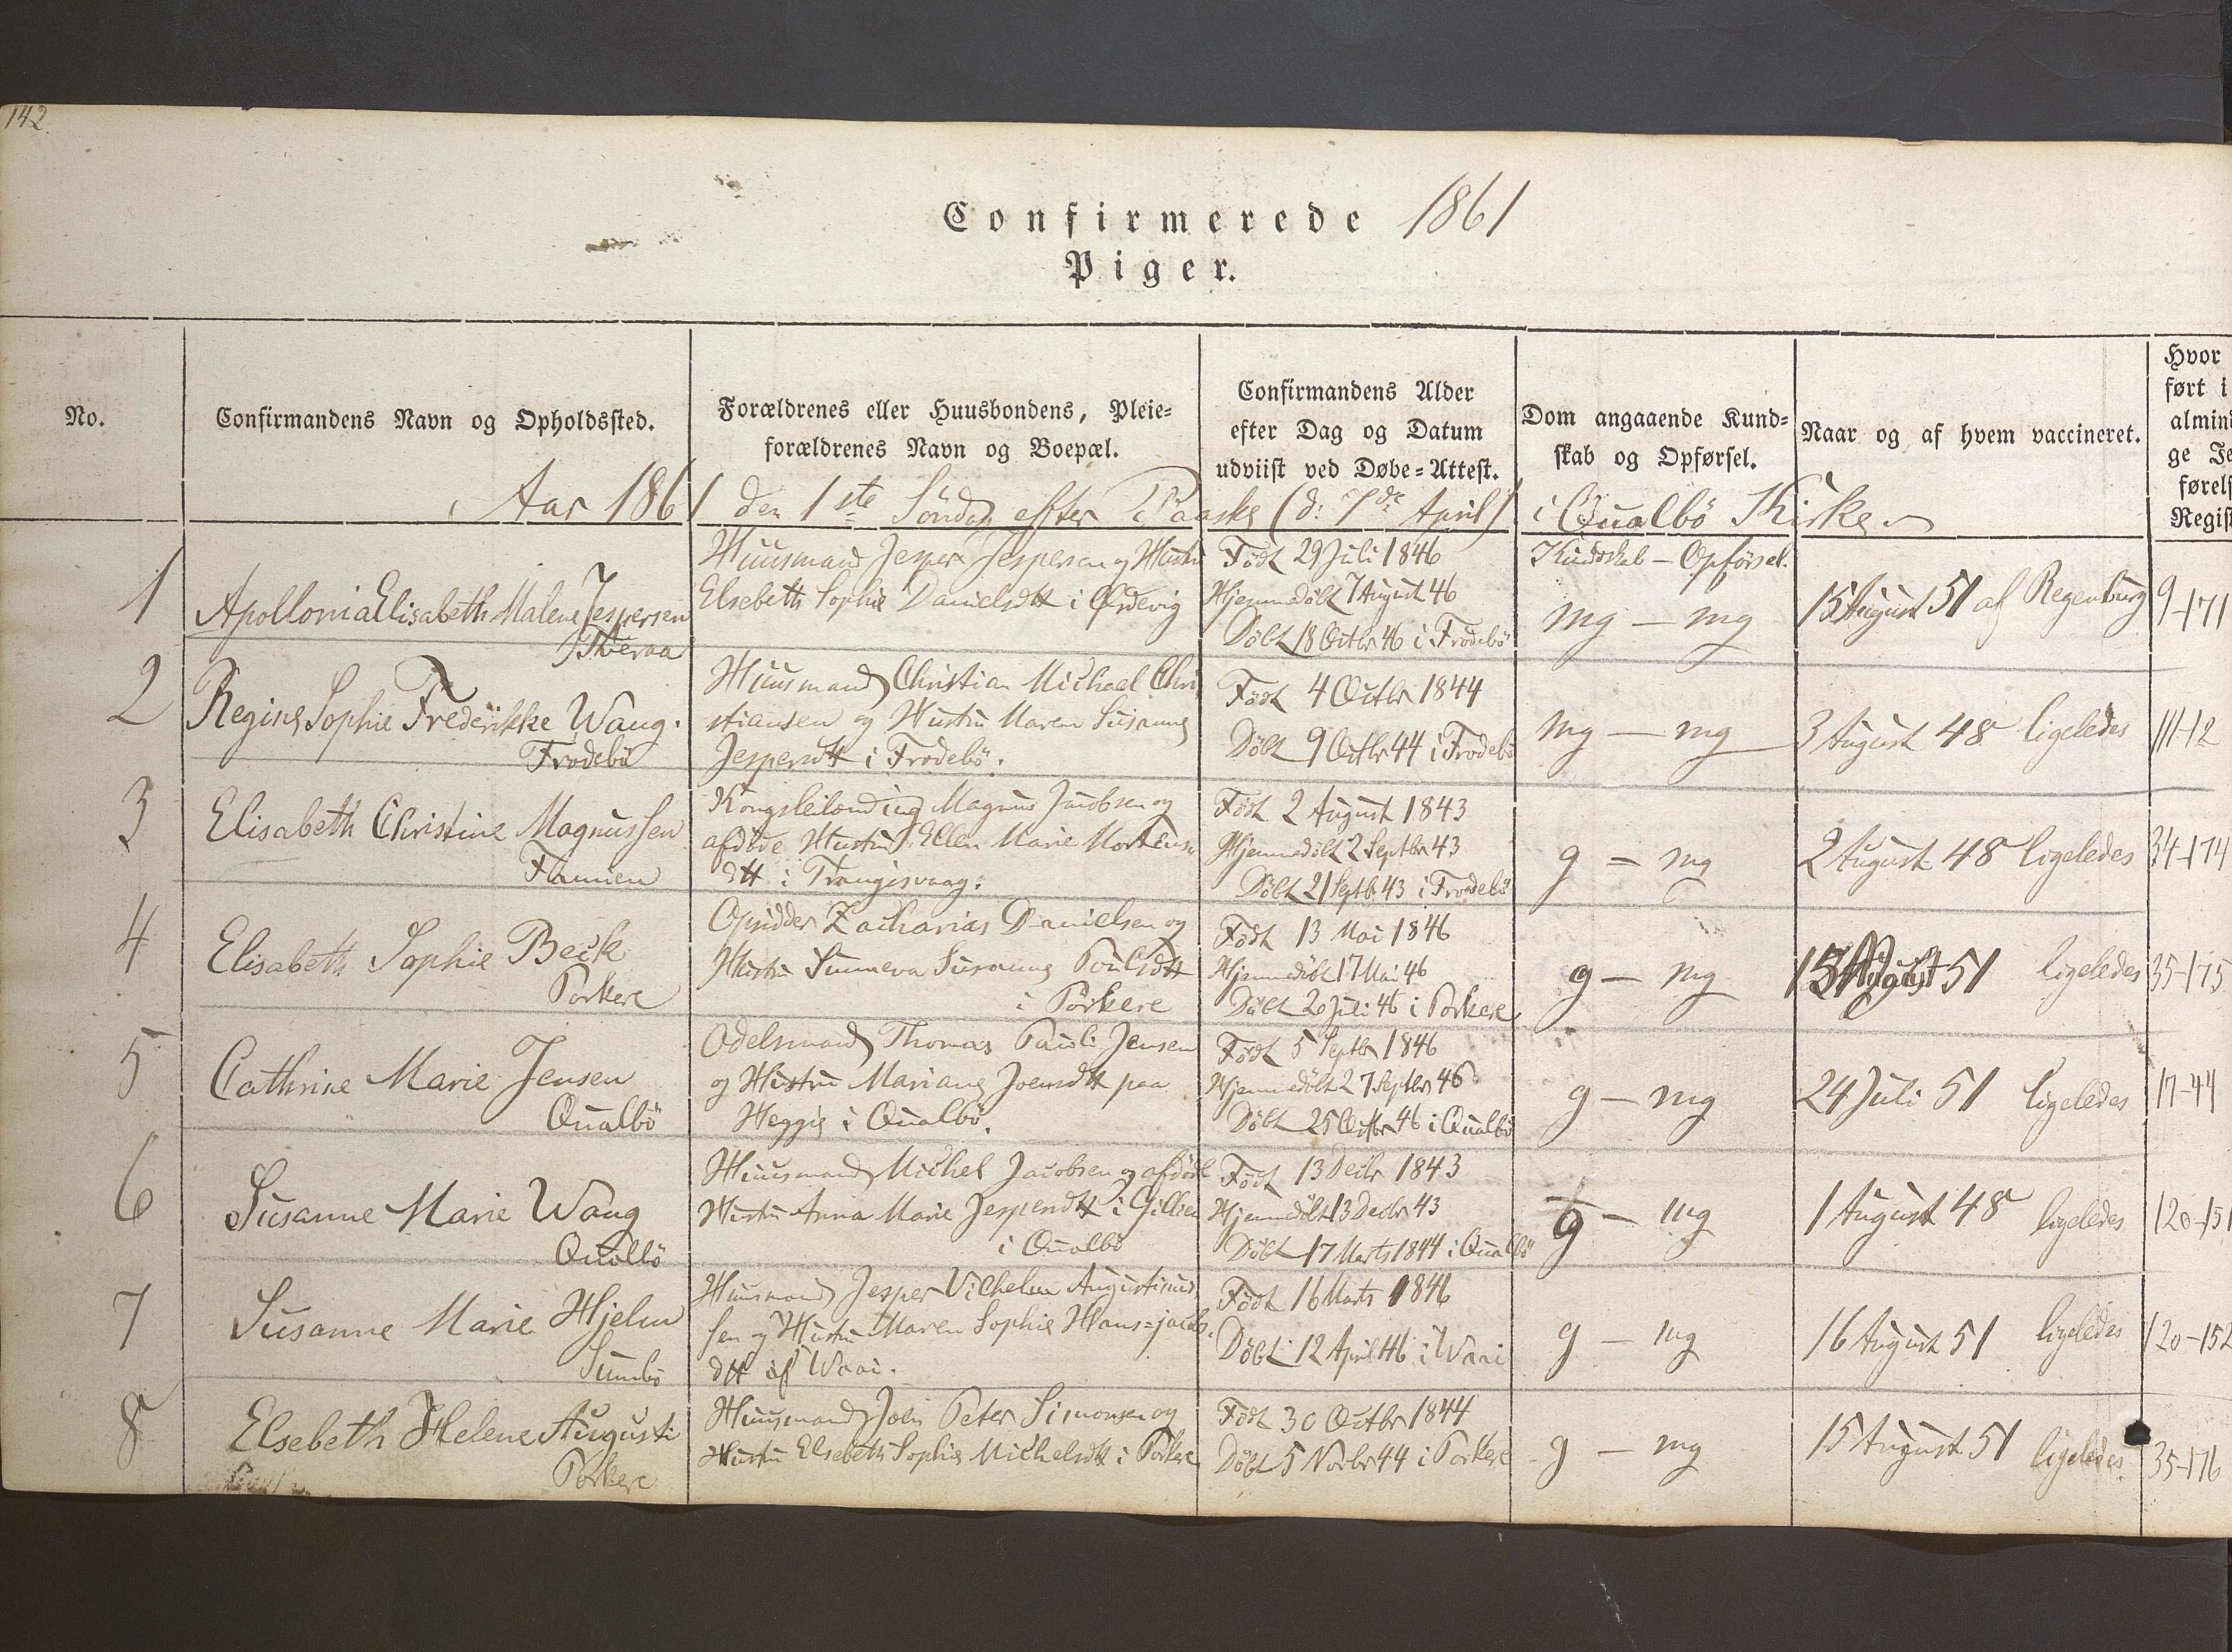 142.
Confirmerede 1861
Piger.
No.
Confirmandens Navn og Opholdssted.
Forældrenes eller Huusbondens, Pleie-
forældrenes Navn og Boepæl.
Confirmandens Alder
efter Dag og Datum
udviist ved Døbe-Attest.
Dom angaaende Kund-
skab og Opførsel.
Naar og af hvem vaccineret.
Hvor
ført i
almind
ge Je
førels
Regist
Aar 1861 den 1ste Söndag efter Paaske (d: 7de April) i Qualbö Kirke
1
Apollonia Elisabeth Malene Jespersen
Tveraa
Huusmand Jesper Jespersen og Hustru
Elsebeth Sophie Danielsdtt i Ördevig
Født 29 Juli 1846
Hjemmedöbt 7 August 46
Döbt 18 Octbr 46 i Frodebö
Kundskab - Opförsel.
mg - mg
15 August 51 af Regenburg
9-171
2
Regine Sophie Frederikke Waag.
Frodebö
Huusmand Christian Michael Chri
stiansen og Hustru Maren Susanne
Jespersdtt i Frodebö.
Födt 4 Octbr 1844
Döbt 9 Octbr 44 i Frodebö
mg - mg
3 August 48 ligeledes
111-12
3
Elisabeth Christine Magnussen
Famien
Kongsleilending Magnus Jacobsen og
afdöde Hustru Ellen Marie Mortens
dtt i Trangisvaag.
Födt 2 August 1843
Hjemmedöbt 2 Septbr 43
Döbt 21 Septbr 43 i Frodebö
g - mg
2 August 48 ligeledes
34-174
4
Elisabeth Sophie Beck
Porkere
Opsidder Zacharias Danielsen og
Hustru Sunneva Susanne Poulsdtt
i Porkere
Födt 13 Mai 1846
Hjemmedöbt 17 Mai 46
Döbt 20 Juli 46 i Porkere
g - mg
15 August 51 ligeledes
35-175
5
Cathrine Marie Jensen
Qualbö
Odelsmand Thomas Pauli Jensen
og Hustru Mariane Joensdtt paa
Heggie i Qualbö.
Födt 5 Septbr 1846
Hjemmedöbt 27 Septbr 46
Döbt 25 Octbr 46 i Qualbö
g - mg
24 Juli 51 ligeledes
17-44
6
Susanne Marie Waag
Qualbö
Huusmand Michel Jacobsen og afdöde
Hustru Anna Marie Jespersdtt i
i Qualbö
Födt 13 Decbr 1843
Hjemmedöbt 13 Decbr 43
Döbt 17 Marts 1844 i Qualbö
g - mg
1 August 48 ligeledes
120-151
7
Susanne Marie Hjelm
Sumbö
Huusmand Jesper Vilhelm Augustinus
sen og Hustru Maren Sophie Hans=jacobs.
dtt af Waai.
Födt 16 Marts 1846
Döbt 12 April 46 i Waai
g - mg
16 August 51 ligeledes
120-152
8
Elsebeth Helene Augusti
Porkere
Huusmand Joen Peter Simonsen og
Hustru Elsebeth Sophie Michelsdtt i Porkere
Födt 30 Octbr 1844
Döbt 5 Novbr 44 i Porkere
g - mg
15 August 51 ligeledes
35-176